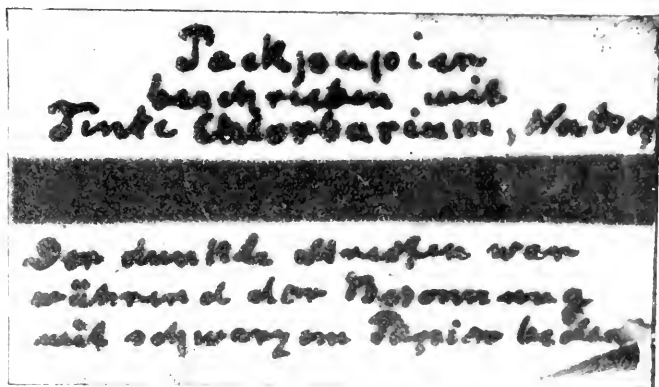 Packpapier
beschrieben mit
Tinte Chlorbarium, Natron
Der dunkle Streifen war
während der Besonnung
mit schwarzem Papier bedeckt